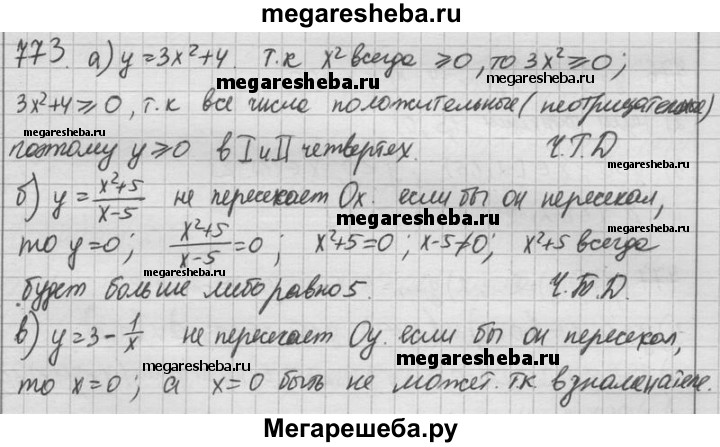 megaresheba.ru
773. а) y=3x²+4. т.к x² всегда ≥0, то 3x²≥0;
megaresheba.ru
megaresheba.ru
3x²+4≥0, т.к все числа положительные (неотрицательные)
megaresheba.ru
megaresheba.ru
поэтому y≥0 в I и II четвертех. Ч.Т.Д
megaresheba.ru
б) y = (x²+5)/(x-5) не пересекает Ox. если бы он пересекал,
megaresheba.ru
то y=0; (x²+5)/(x-5)=0; x²+5=0; x-5≠0; x²+5 всегда
megaresheba.ru
megaresheba.ru
будет больше либо равно 5. Ч.Т.Д.
megaresheba.ru
в) y=3-1/x не пересекает Oy. если бы он пересекал,
megaresheba.ru
megaresheba.ru
то x=0; а x=0 быть не может. тк в знаменателе.
megaresheba.ru
Мегарешеба.ру